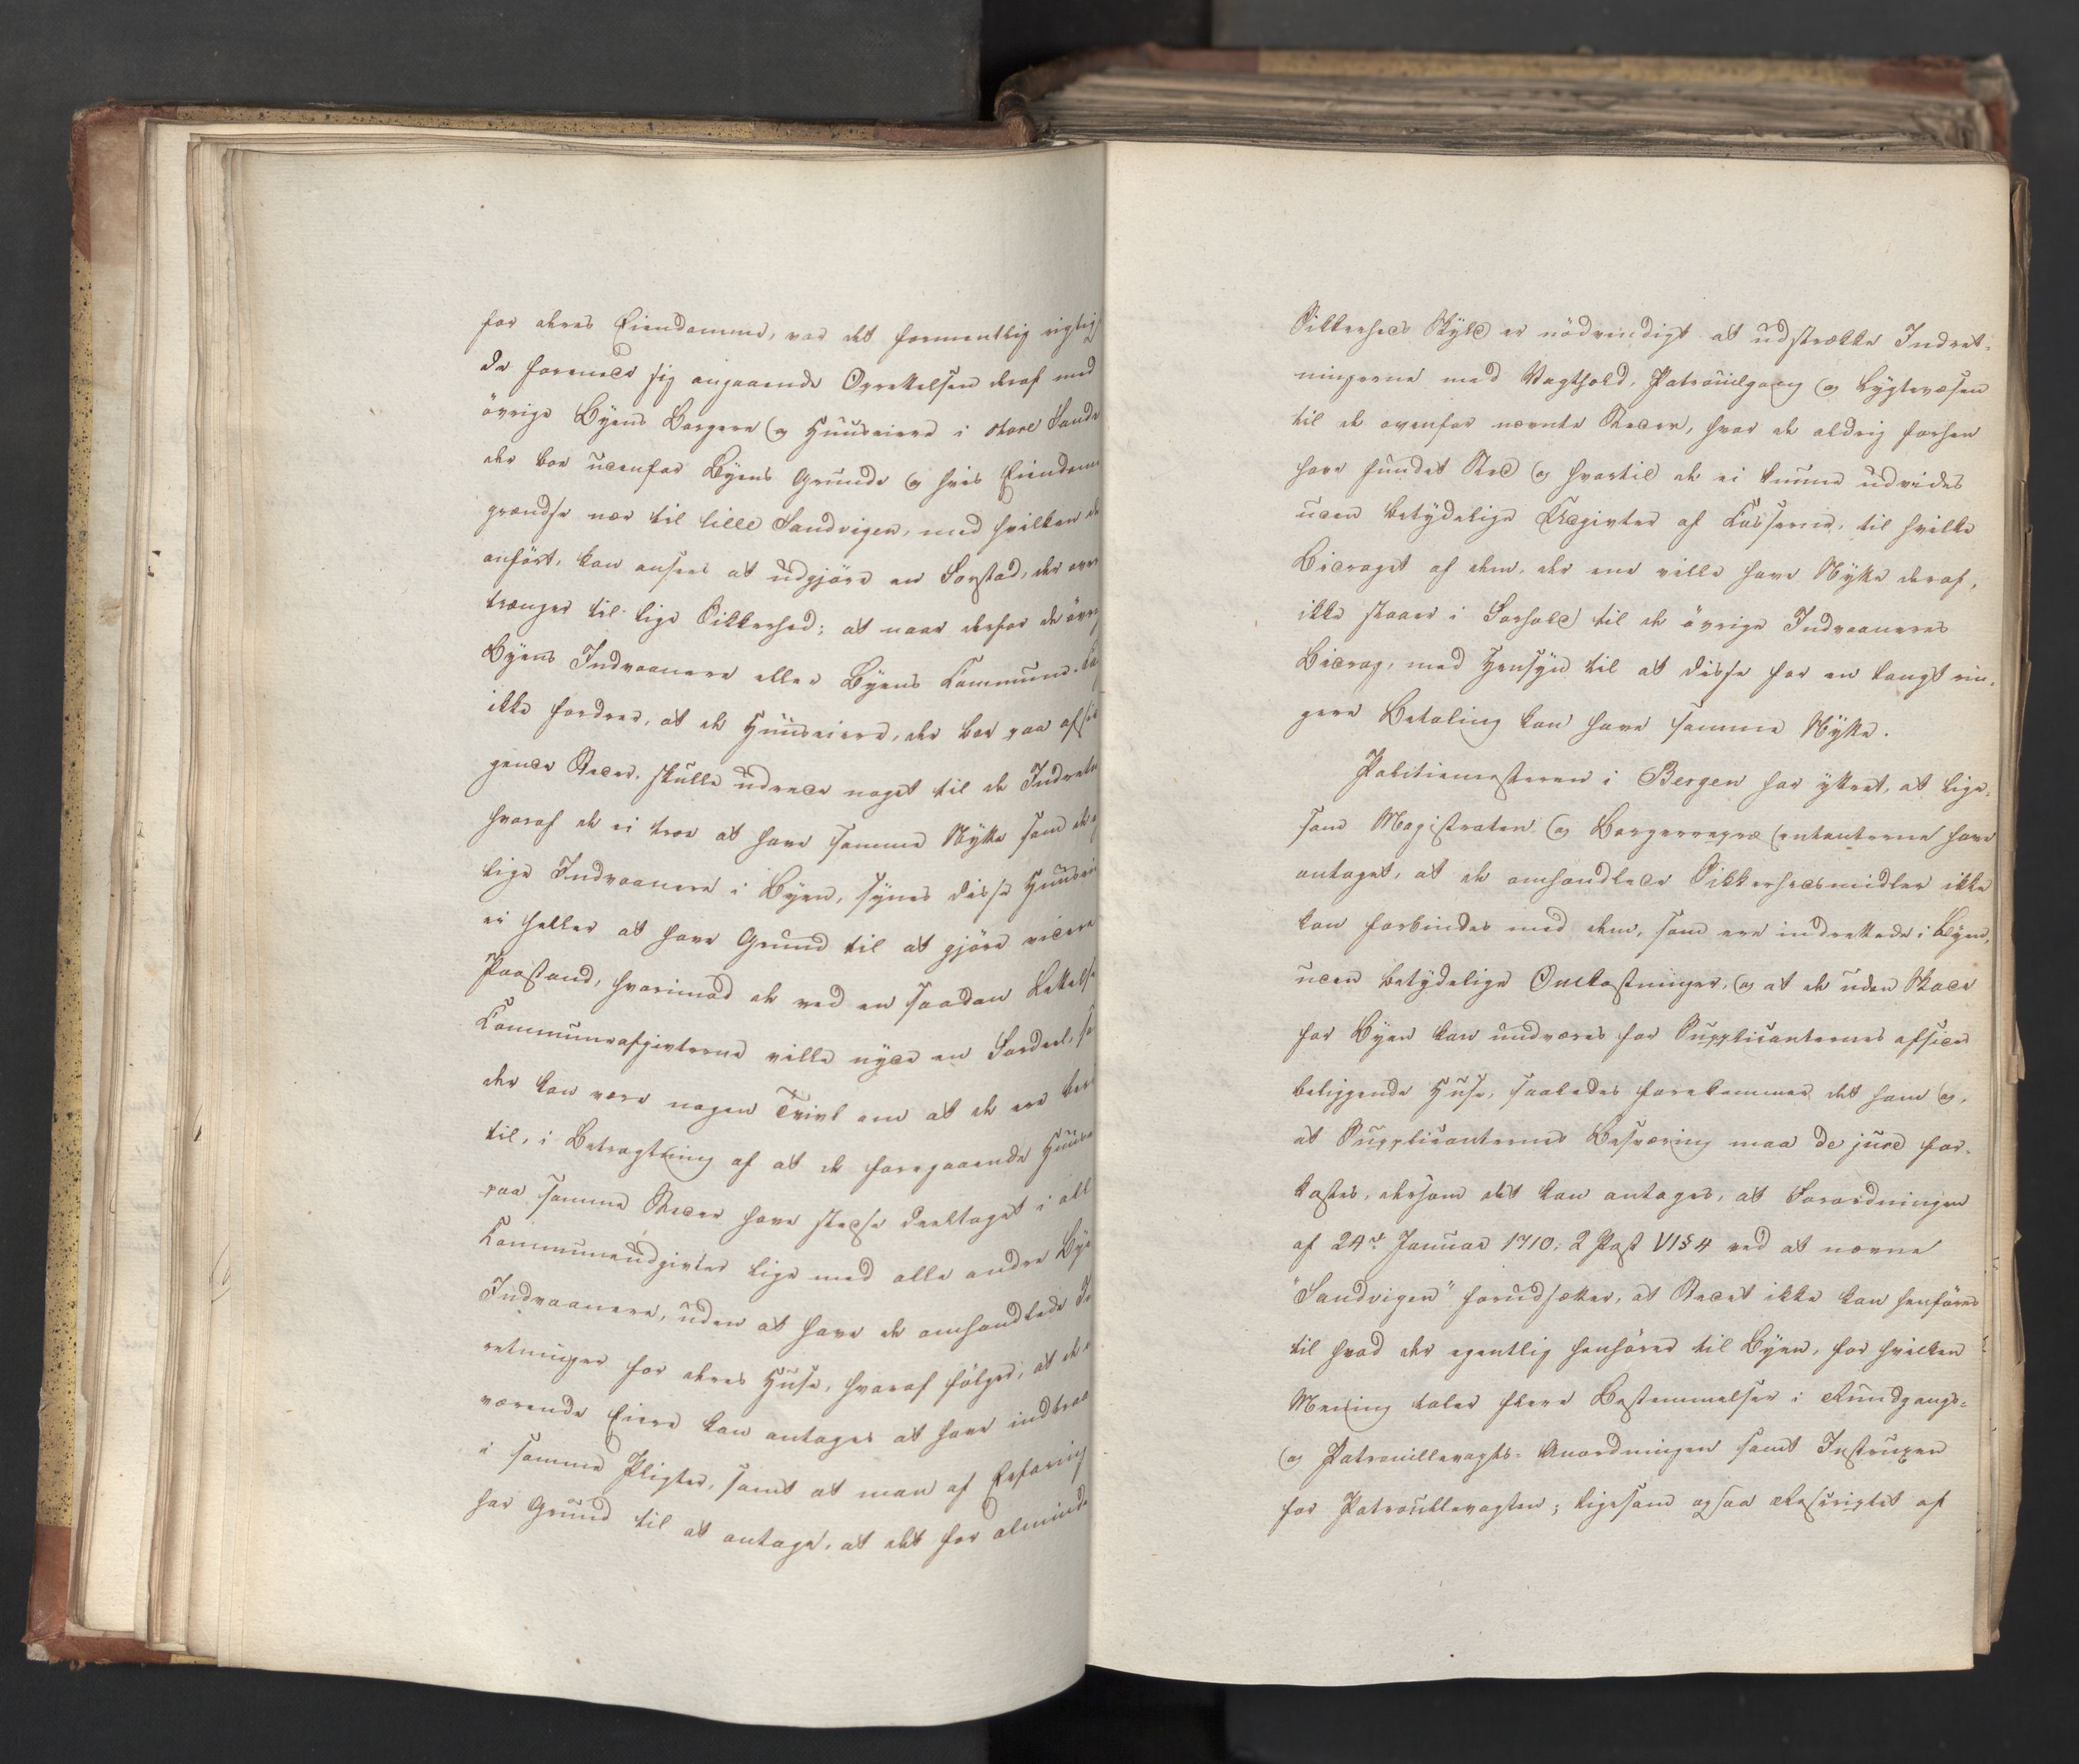 for deres Eiendomme, var det formentlig rigtig
de forenede sig angaaende Oprettelsen deraf med
övrige Byens Borgere og Huuseiere i store Sandv
der boe udenfor Byens Grunde og hvis Eiendom
grændse nær til lille Sandvigen, med hvilken de
anført, kan ansees at udgjöre en Forstad, der
trænger til lige Sikkerhed; at naar derfor de övri
Byens Indvaanere eller Byens Commune-Ca
ikke fordrer, at de Huuseiere, der boe paa afsi
gende Steder, skulle udrede noget til de Indretn
hvoraf de ei troe at have samme Nytte som de
lige Indvaanere i Byen, synes disse Huusei
ei heller at have Grund til at gjöre videre
Paastand, hvorimod de ved en saadan Lettelse
Communeafgivterne ville nyde en Fordeel, so
der kan være nogen Tvivl om at de ere ber
til, i Betragtning af at de foregaaende Huuse
paa samme Steder have stedse deeltaget i all
Communeudgivter lige med alle andre Bye
Indvaanere, uden at have de omhandlede In
retninger for deres Huse, hvoraf fölger, at de n
værende Eiere kan antages at have indtraad
i samme Pligter, samt at man af Erfaring
har Grund til at antage, at det for alminde
Sikkerheds Skyld er nödvendigt at udstrække Indret-
ningerne med Vagthold, Patrouilgang og Lygtevæsen
til de ovenfor nævnte Steder, hvor de aldrig forhen
have fundet Sted og hvortil de ei kunne udvides
uden betydelige Udgivter af Casserne, til hvilke
Bidraget af dem, der ene ville have Nytte deraf,
ikke staaer i Forhold til de övrige Indvaaneres
Bidrag, med Hensyn til at disse for en langt rin-
gere Betaling kan have samme Nytte.
Politiemesteren i Bergen har yttret, at lige-
som Magistraten og Borgerrepræsentanterne have
antaget, at de omhandlede Sikkerhedsmidler ikke
kan forbindes med dem, som ere indrettede i Byen,
uden betydelige Omkostninger, og at de uden Skade
for Byen kan undværes for Supplicanternes afsides
beliggende Huse, saaledes forekommer det ham og,
at Supplicanternes Besværing maa de jure for-
kastes, dersom det kan antages, at Forordningen
af 24de Januar 1710, 2 Post VI § 4 ved at nævne
"Sandvigen" forudsætter, at Stedet ikke kan henföres
til hvad der egentlig henhörer til Byen, for hvilken
Mening taler flere Bestemmelser i Rundgangs-
og Patrouillevagts-Anordningen samt Instruxen
for Patrouillevagten; ligesom ogsaa Rescriptet af